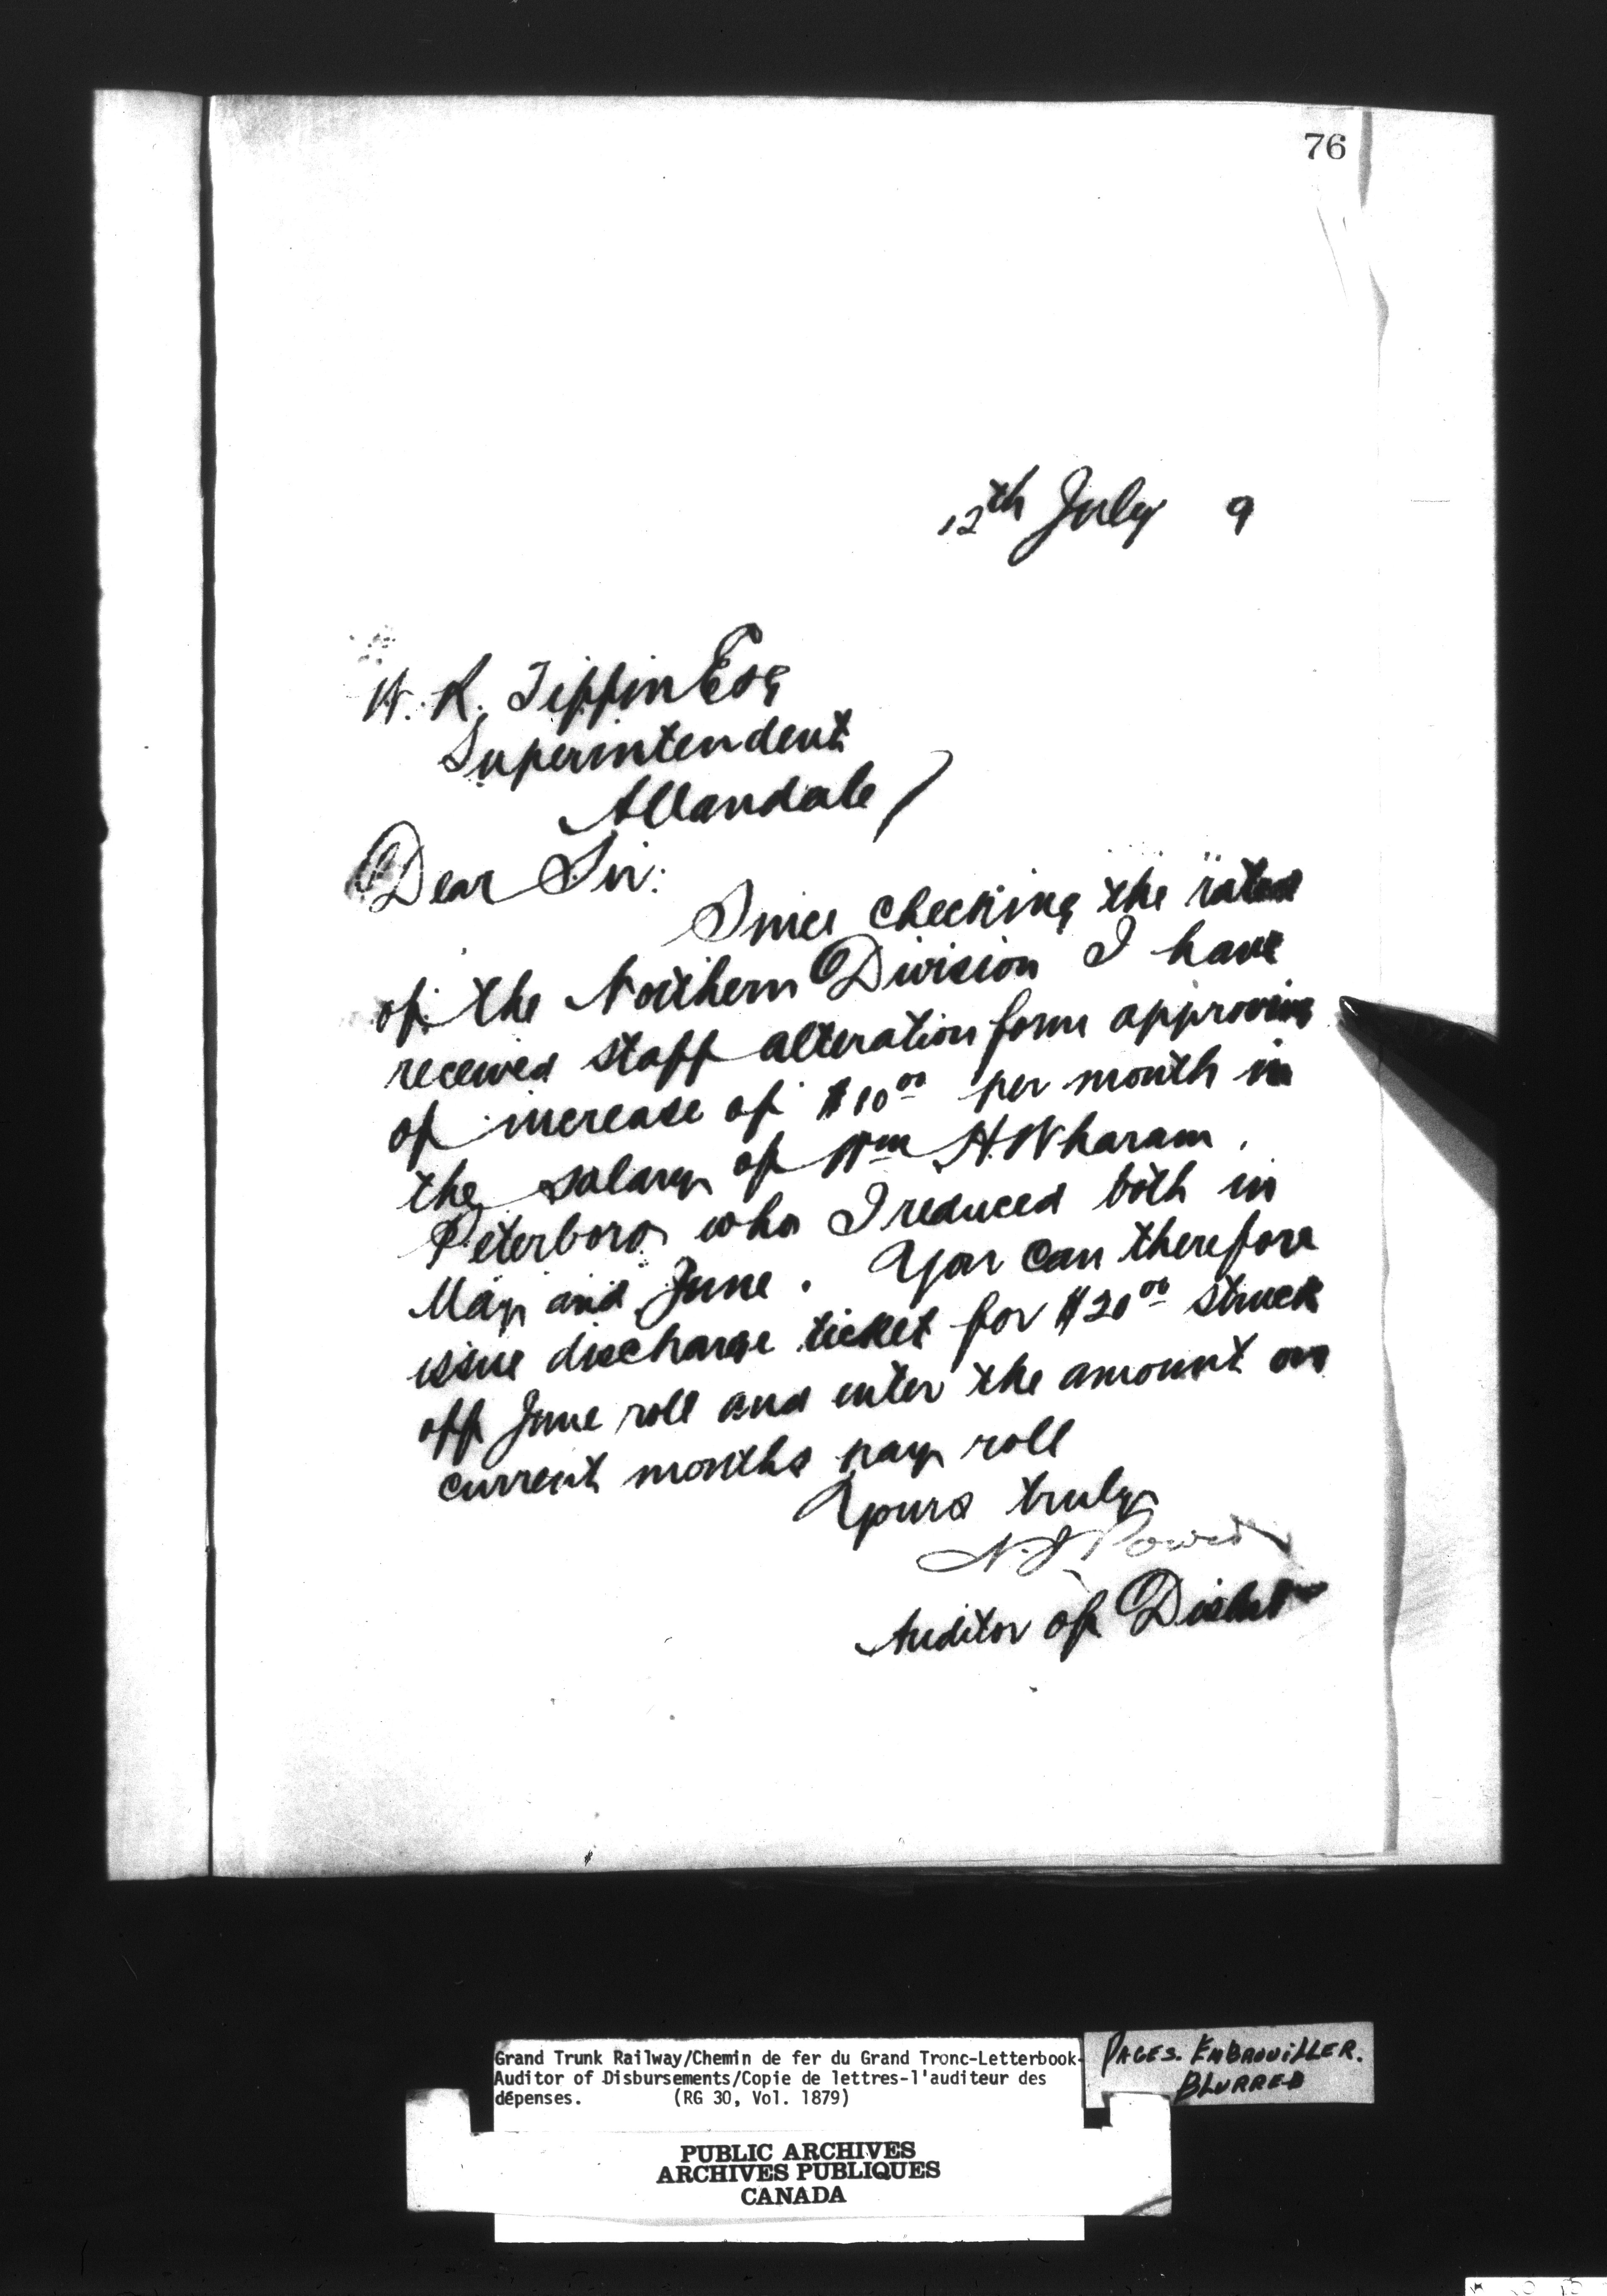 76
12th July 9
W. R. Tiffin Esq
Superintendent
Allandale/
Dear Sir:
Since checking the rates
of the Northern Division I have
received staff alteration form approving
of increase of $10 00 per month in
the salary of Wm H. Wharam
Peterboro who I reduced both in
May and June. You can therefore
issue discharge ticket for $20 00 struck
off June roll and enter the amount on
current months pay roll
Yours truly
N. J. Power
Auditor of Disbts
Grand Trunk Railway/Chemin de fer du Grand Tronc-Letterbook-
Auditor of Disbursements/Copie de lettres-l'auditeur des
dépenses. (RG 30, Vol. 1879)
PAGES. EMBROUILLER.
BLURRED
PUBLIC ARCHIVES
ARCHIVES PUBLIQUES
CANADA